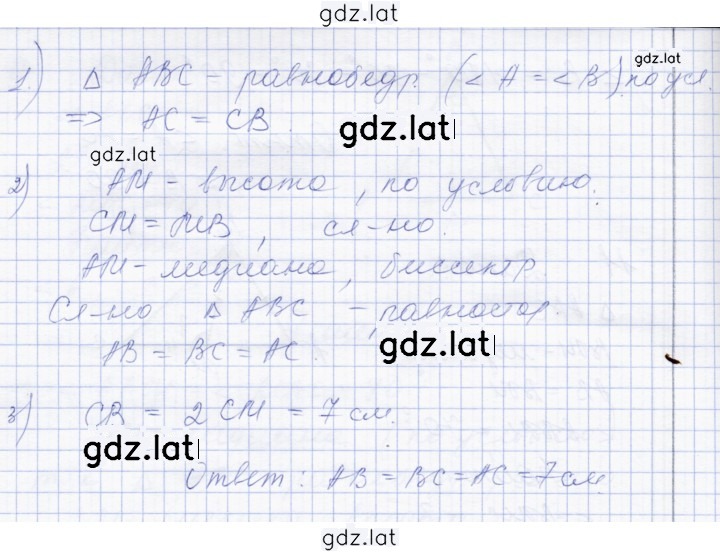 gdz.lat
1) Δ ABC - равнобедр. (<A = <B) по усл.
gdz.lat
=> AC = CB
gdz.lat
2) AM - высота, по условию.
CM = MB, сл-но.
AM - медиана, биссектр.
Сл-но Δ ABC - равностор.
AB = BC = AC.
gdz.lat
3) CB = 2 CM = 7 см.
gdz.lat
Ответ: AB = BC = AC = 7 см.
gdz.lat